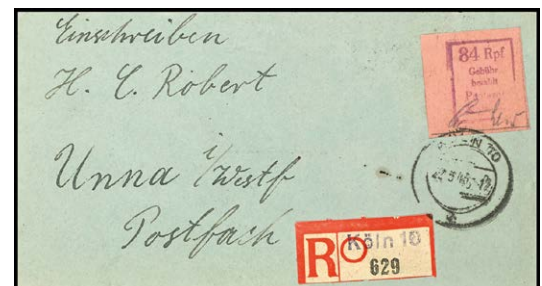 Einschreiben
H. C. Robert
Unna i/Westf
Postfach
84 Rpf
Gebühr
bezahlt
R
Köln 10
629